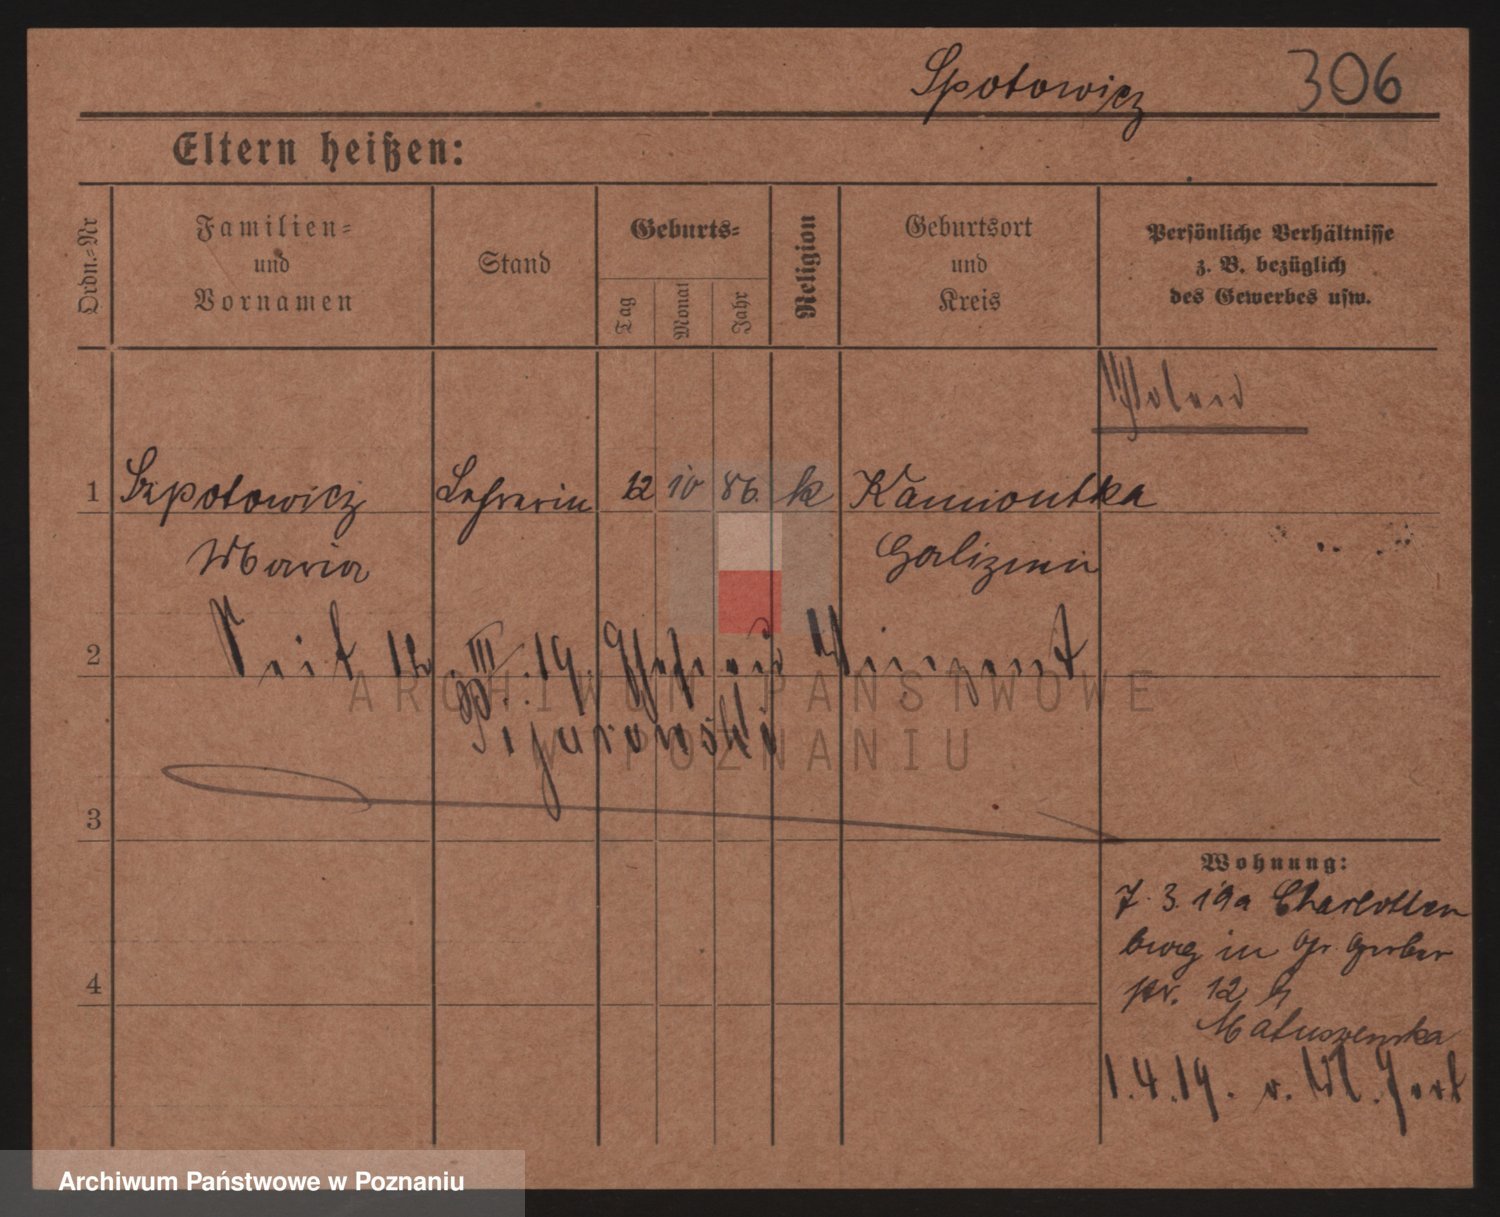 Spotowicz 306
Eltern heißen:
Ordn.-Nr
Familien-
und
Vornamen
Stand
Geburts-
Tag
Monat
Jahr
Religion
Geburtsort
und
Kreis
Persönliche Verhältnisse
z. B. bezüglich
des Gewerbes usw.
1 Szpotowicz Lehrerin 12 10 86. k Kamionka
Maria Galizien
2 Seit 12. III. 19. Ehefrau Vinzent
Pijurowski
3
Wohnung:
7. 3. 19 a Charlotten
burg in Gr. Gerber
str. 12 b
Matuszewska
4
1.4.19. v. W. fort
ARCHIWUM PAŃSTWOWE
W POZNANIU
Archiwum Państwowe w Poznaniu